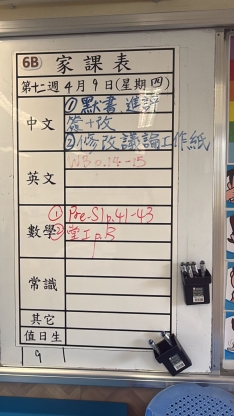 6B 家課表
第十二週4月9日(星期四)
中文 ①默書、進評
簽+改
②修改議論工作紙
英文 NB p.14-15
數學 ① Pre-S1 p.41-43
② 堂I p.13
常識
其它
值日生
9